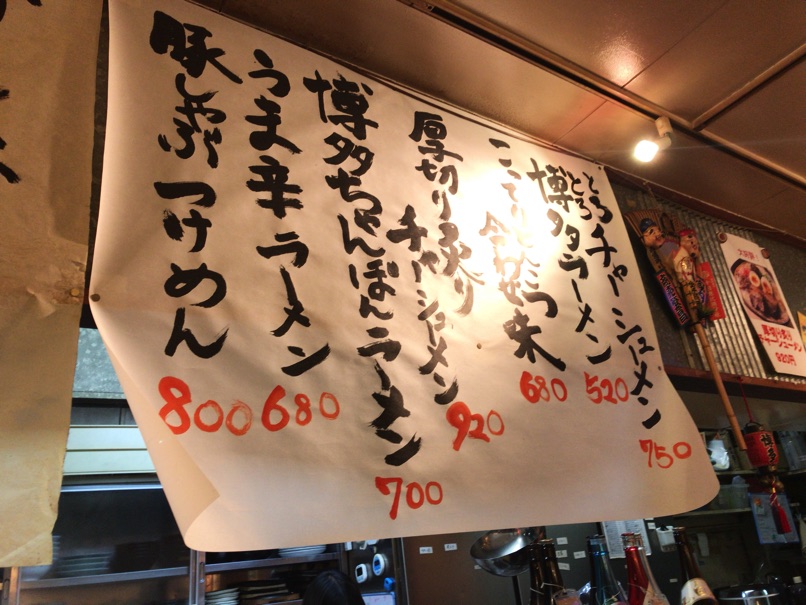 とろとろチャーシューメン
750
博多ラーメン
520
こってり
味
680
厚切り炙り
チャーシューメン
920
博多ちゃんぽんラーメン
700
うま辛ラーメン
680
豚しゃぶつけめん
800
厚切り炙り
チャーシューメン
920円